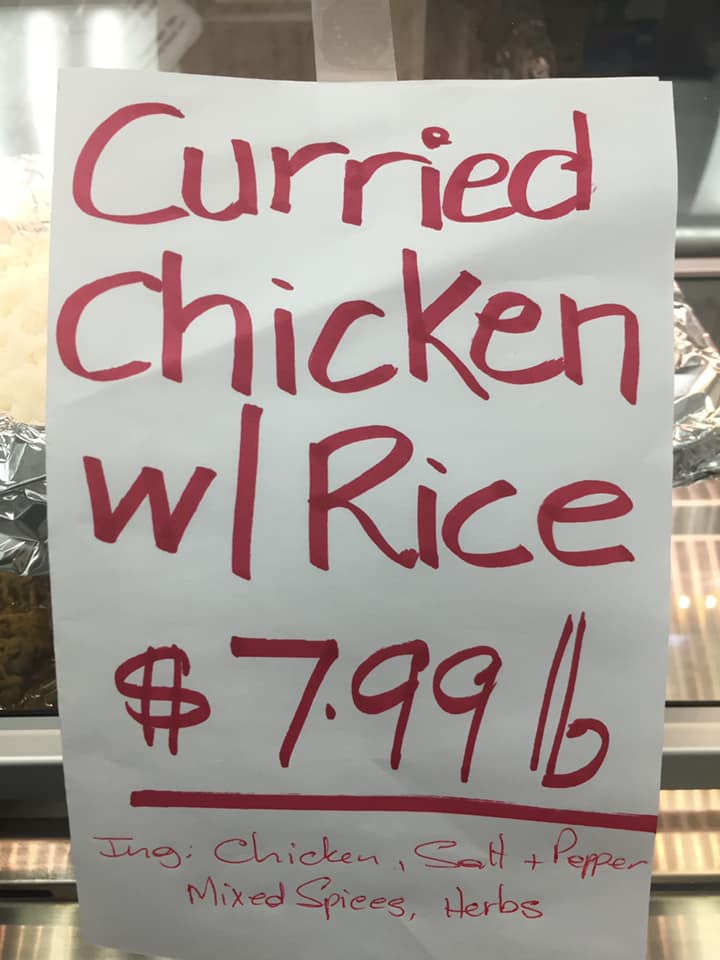 Curried
Chicken
w/ Rice
$7.99 lb
Ing: Chicken, Salt + Pepper
Mixed Spices, Herbs